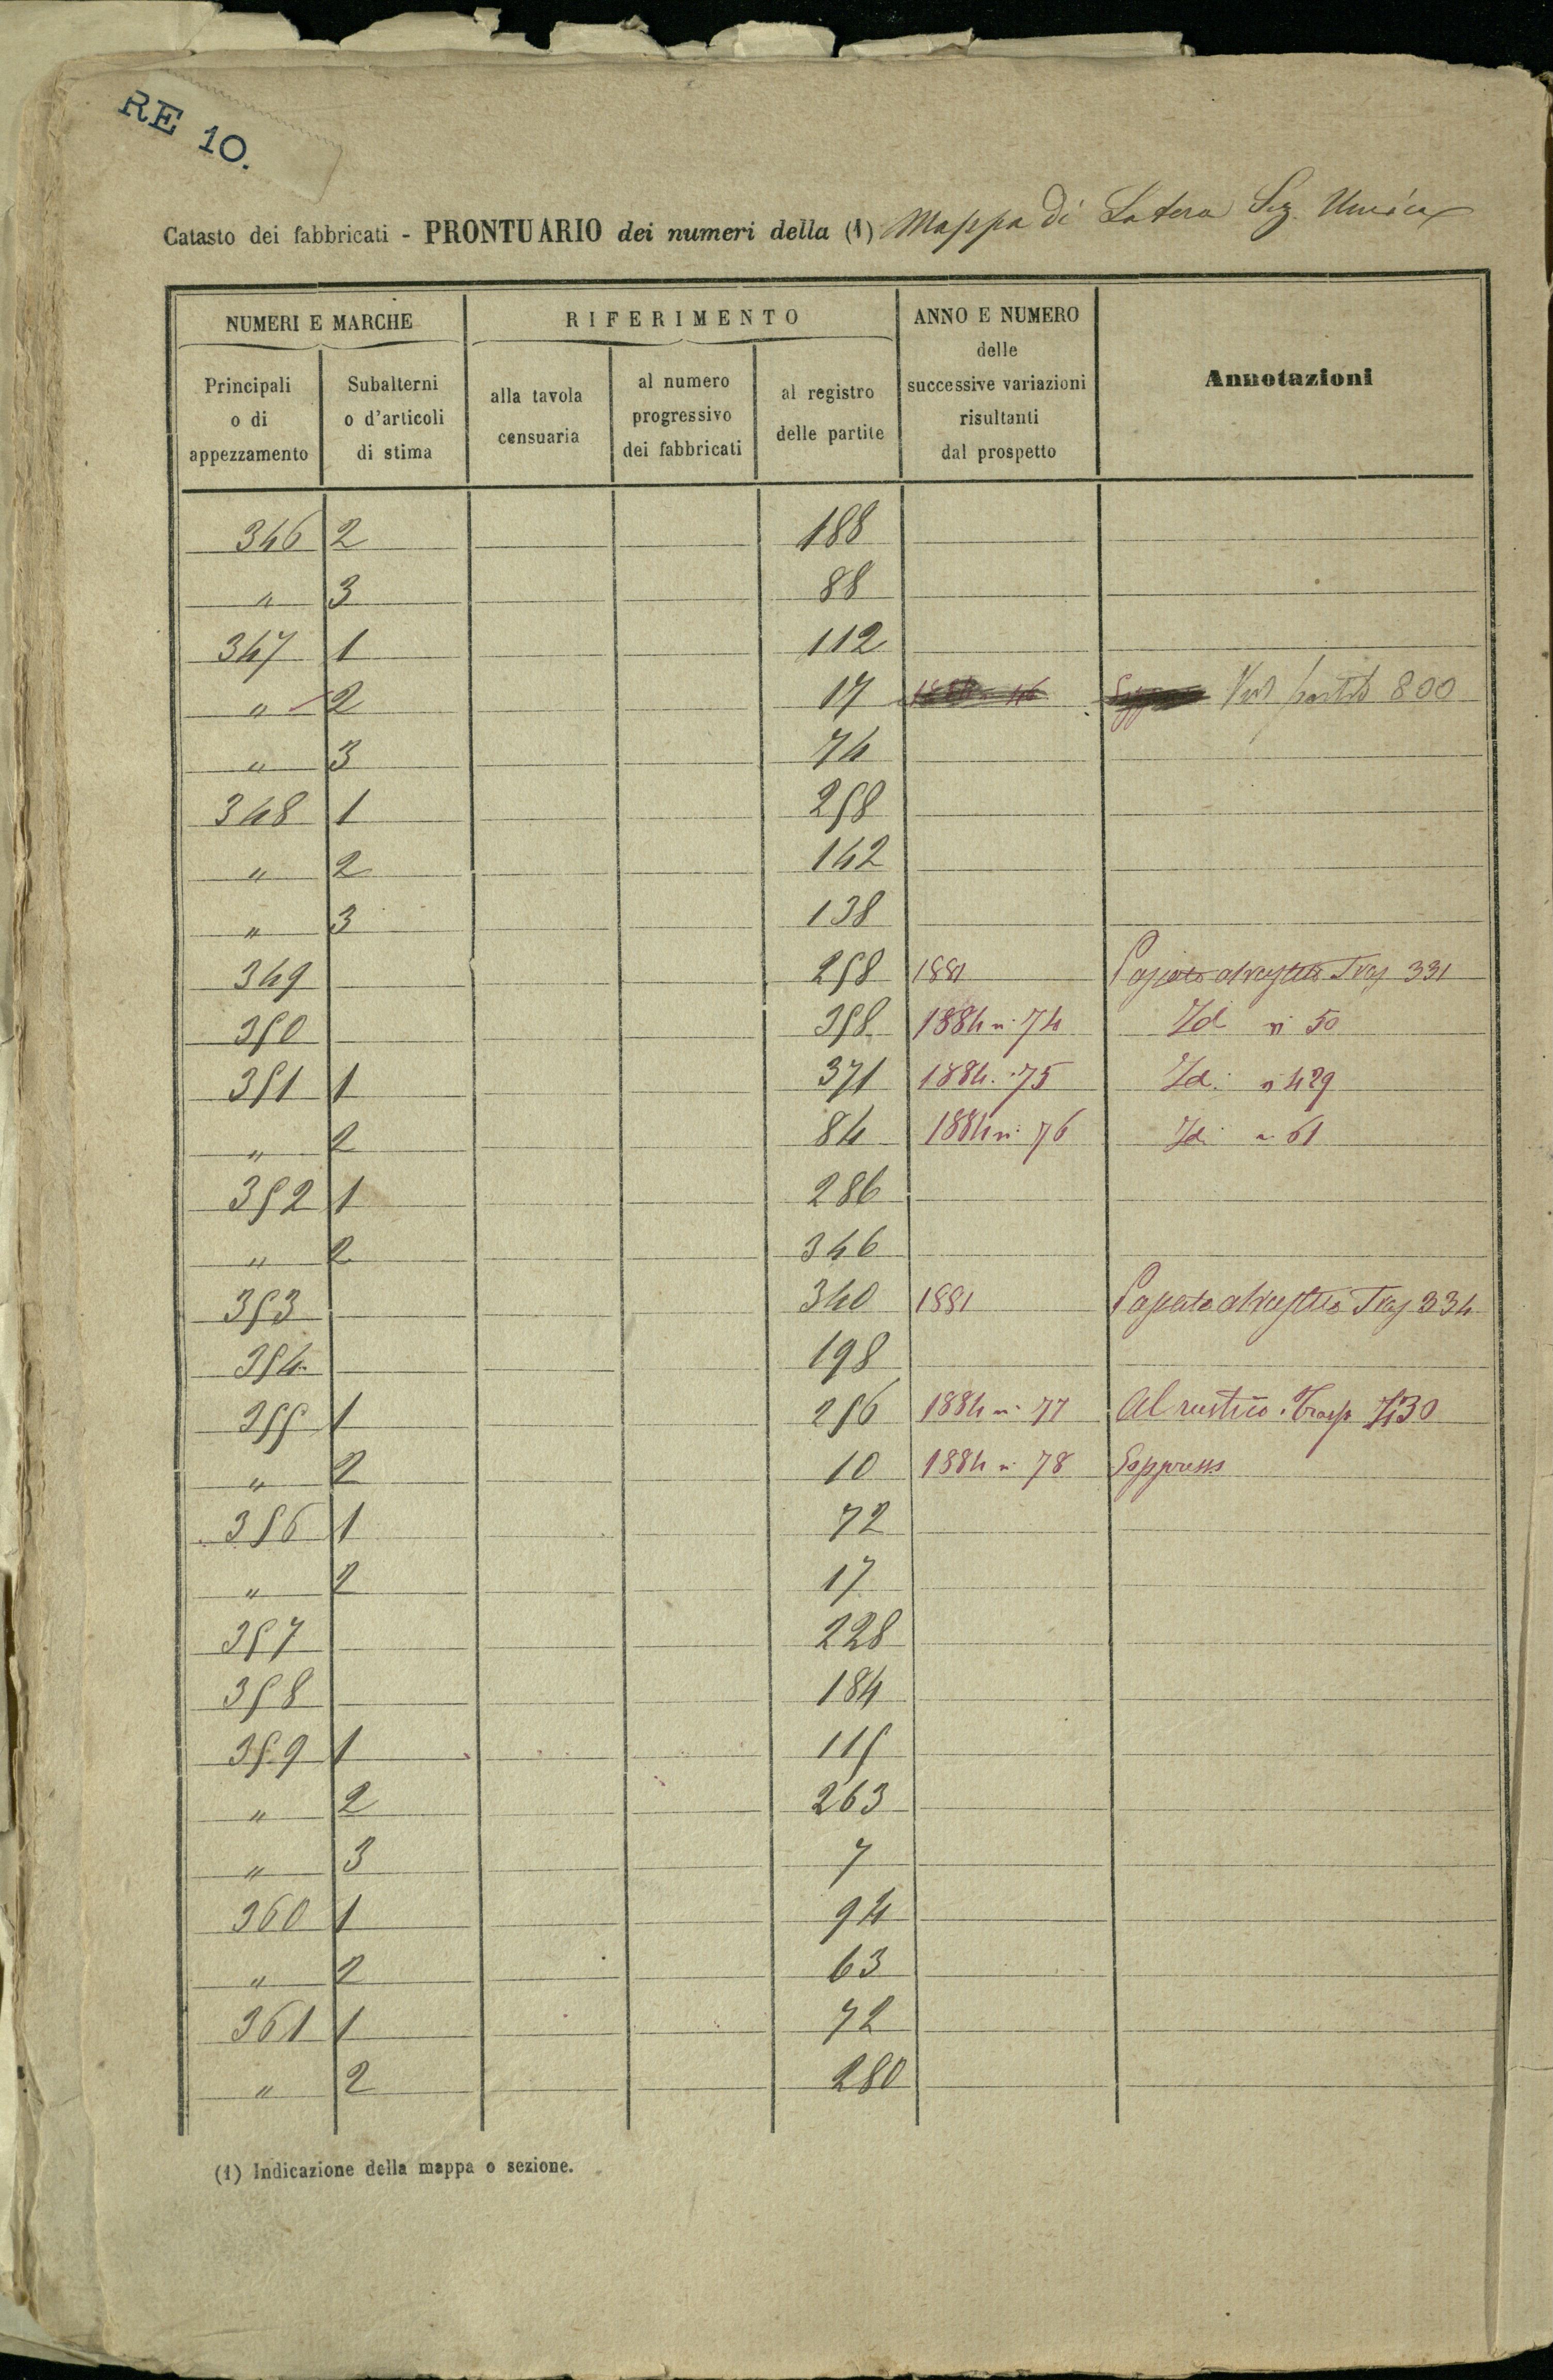 RE 10.
Catasto dei fabbricati - PRONTUARIO dei numeri della (1) Mappa di Latera Sez. Unica
NUMERI E MARCHE RIFERIMENTO ANNO E NUMERO delle successive variazioni risultanti dal prospetto Annotazioni
Principali o di appezzamento Subalterni o d'articoli di stima alla tavola censuaria al numero progressivo dei fabbricati al registro delle partite
346 2 188
" 3 88
347 1 112
" 2 17 800
" 3 74
348 1 258
" 2 142
" 3 138
349 258 1881 331
350 358 1884 n. 74 Id n 50
351 1 371 1884 . 75 Id. n 429
" 2 84 1884 n. 76 Id n 61
352 1 286
" 2 346
353 340 1881 334
354 198
355 1 256 1884 n. 77 Al rustico. Trasp 430
" 2 10 1884 n. 78 Soppress
356 1 72
" 2 17
357 228
358 184
359 1 115
" 2 263
" 3 7
360 1 94
" 2 63
361 1 72
" 2 280
(1) Indicazione della mappa o sezione.